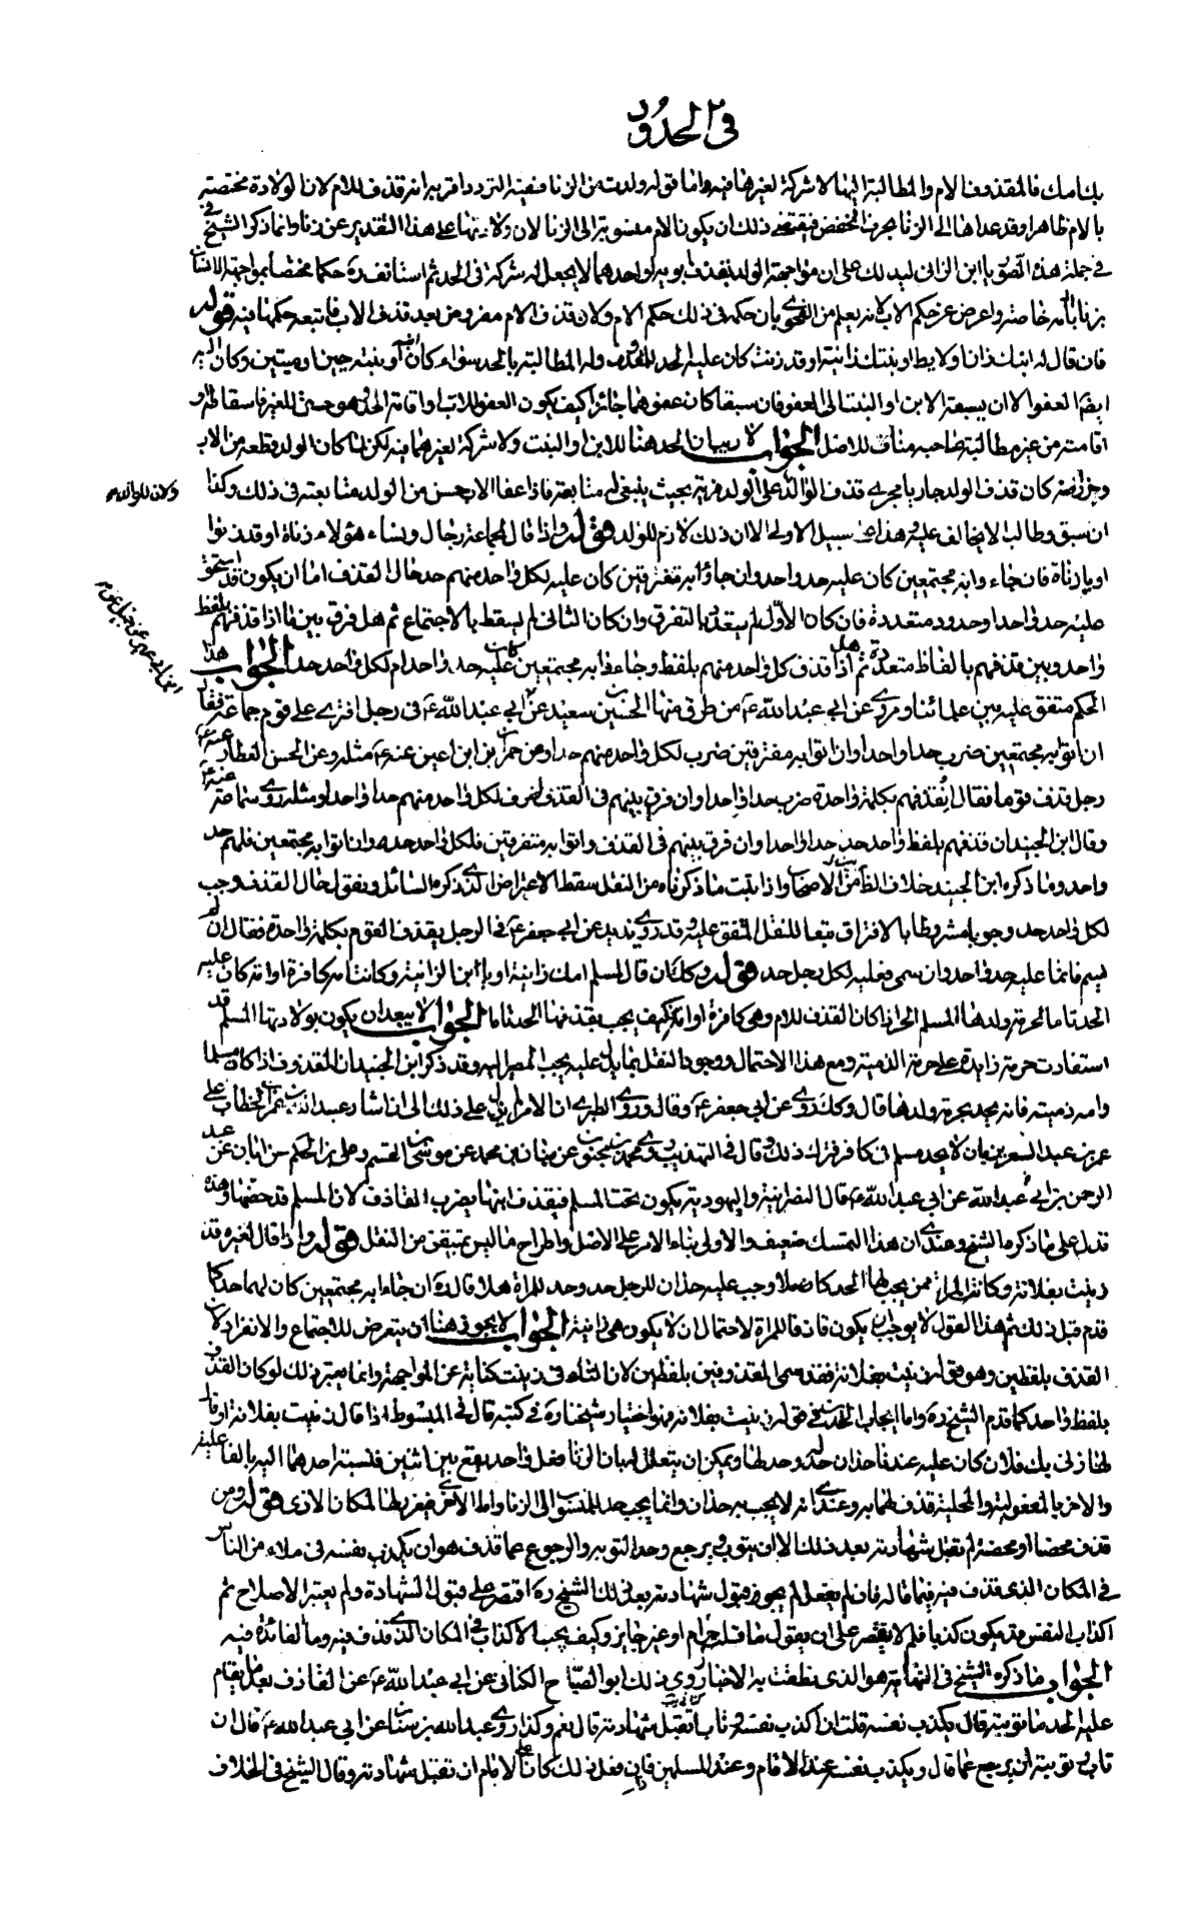 في الحدود
بك امك فالمقذوف الام والمطالبة اليها لا شركة لغيرها فيه واما قوله ولدت من الزنا ففيه التردد اقربه انه قذف للام لان الولادة مختصة
بالام ظاهرا وقد عداها الى الزنا بحرف الخفض فيقتضي ذلك ان يكون الام منسوبة الى الزنا لان ولادتها على هذا التقدير عن زنا وانما ذكر الشيخ
في جملة هذه الصور يا ابن الزاني ليدلك على ان مواجهة الولد بقذف ابويه او احدهما لا يجعل له شركة في الحد ثم استانف ره حكما مختصا بمواجهة الانسان
بزنا امه خاصة واعرض عن حكم الاب لانه يعلم من الفحوى بان حكمه في ذلك حكم الام ولان قذف الام مفروض بعد قذف الاب فاتبعه حكمها فيه قوله
فان قال له ابنك زان او لايط او بنتك زانية او قد زنت كان عليه الحد للمقذوف وله المطالبة بالحد سواء كان ابنه او بنته حيين او ميتين وكان اليه
ايضا العفو الا ان يسبقه الابن او البنت الى العفو فان سبقا كان عفوهما جائزا كيف يكون العفو للاب او اقامة الحد وهو حق للغير فاسقاطه او
اقامته من غير مطالبة صاحبه مناف للاصل الجواب لا ريب ان الحد هنا للابن او البنت ولا شركة لغيرهما فيه لكن لما كان الولد قطعة من الاب
وجزا منه كان قذف الولد جار يا مجرى قذف الوالد على الولد مزية بحيث ينبغي له متابعته فاذا عفا الاب حسن من الولد متابعته في ذلك وكذا
ولان للوالد
ان سبق وطالب لا يخالف عليه هذا على سبيل الاولى لا ان ذلك لازم للولد قوله واذا قال لجماعة رجال ونساء هؤلاء زناة او قد زنوا
او يا زناة فان جاءوا به مجتمعين كان عليه حد واحد وان جاؤا به متفرقين كان عليه لكل واحد منهم حد حال القذف اما ان يكون قد استحق
عليه حد واحد او حدود متعددة فان كان الاول لم يتعدد بالتفرق وان كان الثاني لم يسقط بالاجتماع ثم هل فرق بين ما اذا قذفهم بلفظ
واحد وبين قذفهم بالفاظ متعددة ثم هل اذا قذف كل واحد منهم بلفظ وجاءوا به مجتمعين كان عليه حد واحد ام لكل واحد حد الجواب هذا
الحكم متفق عليه بين علمائنا وروى عن ابي عبد الله ع من طرق منها الحسين بن سعيد عن ابي عبد الله ع في رجل افترى على قوم جماعة فقال
ان اتوا به مجتمعين ضرب حدا واحدا وان اتوا به مفترقين ضرب لكل واحد منهم حدا ومن حمران بن اعين عنه ع مثله وعن الحسن العطار عنه ع
رجل قذف قوما فقال ايقذفهم بكلمة واحدة ضرب حدا واحدا وان فرق بينهم في القذف ضرب لكل واحد منهم حدا واحدا ومثله روى سماعة عنه ع
وقال ابن الجنيد ان قذفهم بلفظ واحد حد حدا واحدا وان فرق بينهم في القذف واتوا به متفرقين فلكل واحد حد وان اتوا به مجتمعين فلهم حد
واحد وما ذكره ابن الجنيد خلاف الظاهر من الاصحاب واذا ثبت ما ذكرناه من النقل سقط الاعتراض الذي ذكره السائل ونقول حال القذف وجب
لكل واحد حد وجوبا مشروطا بالافتراق تبعا للنقل المتفق عليه وقد روى بريد عن ابي جعفر ع في الرجل يقذف القوم بكلمة واحدة فقال ان لم
يسم فانما عليه حد واحد وان سمى فعليه لكل رجل حد قوله وكك ان قال لمسلم امك زانية او يا ابن الزانية وكانت امه كافرة او امة كان عليه
الحد تاما لحرمة ولدها المسلم الحر اذا كان القذف للام وهي كافرة او امة كيف يجب بقذفها الحد تاما الجواب لا يبعد ان يكون بولادتها المسلم قد
استفادت حرمة زايدة على حرمة الذمية ومع هذا الاحتمال ووجود النقل بما يدل عليه يجب المصير اليه وقد ذكر ابن الجنيد ان المقذوف اذا كان مسلما
وامه ذمية فانه يحد بحرمة ولدها قال وكك روى عن ابي جعفر ع وقال وروى الطبري ان الامر لم يزل على ذلك الى ان اشار عبد الله بن عمر بن الخطاب على
عمر بن عبد العزيز بان لا يحد مسلم في كافر فترك ذلك وقال في التهذيب روى محمد بن محبوب عن بنان بن محمد عن موسى بن القسم وعلي بن الحكم عن ابان عن عبد
الرحمن بن ابي عبد الله عن ابي عبد الله ع قال النصرانية واليهودية يكون تحت المسلم فيقذف ابنها يضرب القاذف لان المسلم قد حصنها وهذه
تدل على ما ذكره الشيخ وعندي ان هذا التمسك ضعيف والاولى بناء الامر على الاصل واطراح ما ليس بمتيقن من النقل قوله واذا قال لغيره قد
زنيت بفلانة وكانت المراة ممن يجب لها الحد كاملا وجب عليه حدان للرجل حد وحد للمراة هلا قال ره ان جاءا به مجتمعين كان لهما حد كما
قدم قبل ذلك ثم هذا القول لا يوجب ان يكون قاذفا للمراة لاحتمال ان لا يكون هي زانية الجواب لا يجوز هنا ان يتعرض للاجتماع والانفراد لان
القذف بلفظين وهو قوله زنيت بفلانة فقد سمى المقذوفين بلفظين لان التاء في زنيت كناية عن المواجهة وانما يعتبر ذلك لو كان القذف
بلفظ واحد كما قدم الشيخ ره واما ايجاب الحدين في قوله زنيت بفلانة فهو اختيار شيخنا ره في كتبه قال في المبسوط اذا قال زنيت بفلانة او قال
لها زنى بك فلان كان عليه عندنا حدان حد له وحد لها ويمكن ان يتعلل له بان الزنا فعل واحد يقع بين اثنين فنسبة احدهما اليه بالفاعلية
والاخر بالمفعولية والمحلية قذف لهما به وعندي انه لا يجب به حدان وانما يجب حد للمنسوب الى الزنا واما الاخرى فيعزر لها لمكان الاذى قوله ومن
قذف محصنا او محصنة لم تقبل شهادته بعد ذلك الا ان يتوب ويرجع وحد التوبة والرجوع عما قذف هو ان يكذب نفسه في ملاء من الناس
في المكان الذي قذف فيه فيما قاله فان لم يفعل لم يجز قبول شهادته بعد ذلك الشيخ ره اقتصر على قبول الشهادة ولم يعتبر الاصلاح ثم
اكذاب النفس قد يكون كذبا فلم لا يقتصر على ان يقول ما قلته حرام او غير جايز وكيف يجب الاكذاب في المكان الذي قذف فيه وما لفائدة فيه
الجواب ما ذكره الشيخ في النهاية هو الذي نطقت به الاخبار روى ذلك ابو الصباح الكناني عن ابي عبد الله ع عن القاذف بعد ما يقام
عليه الحد ما توبته قال يكذب نفسه قلت ان اكذب نفسه وتاب اتقبل شهادته قال نعم وكذا روى عبد الله بن سنان عن ابي عبد الله ع قال ان
تاب وتوبته ان يرجع عما قال ويكذب نفسه عند الامام وعند المسلمين فاذا فعل ذلك كان على الامام ان تقبل شهادته وقال الشيخ في الخلاف